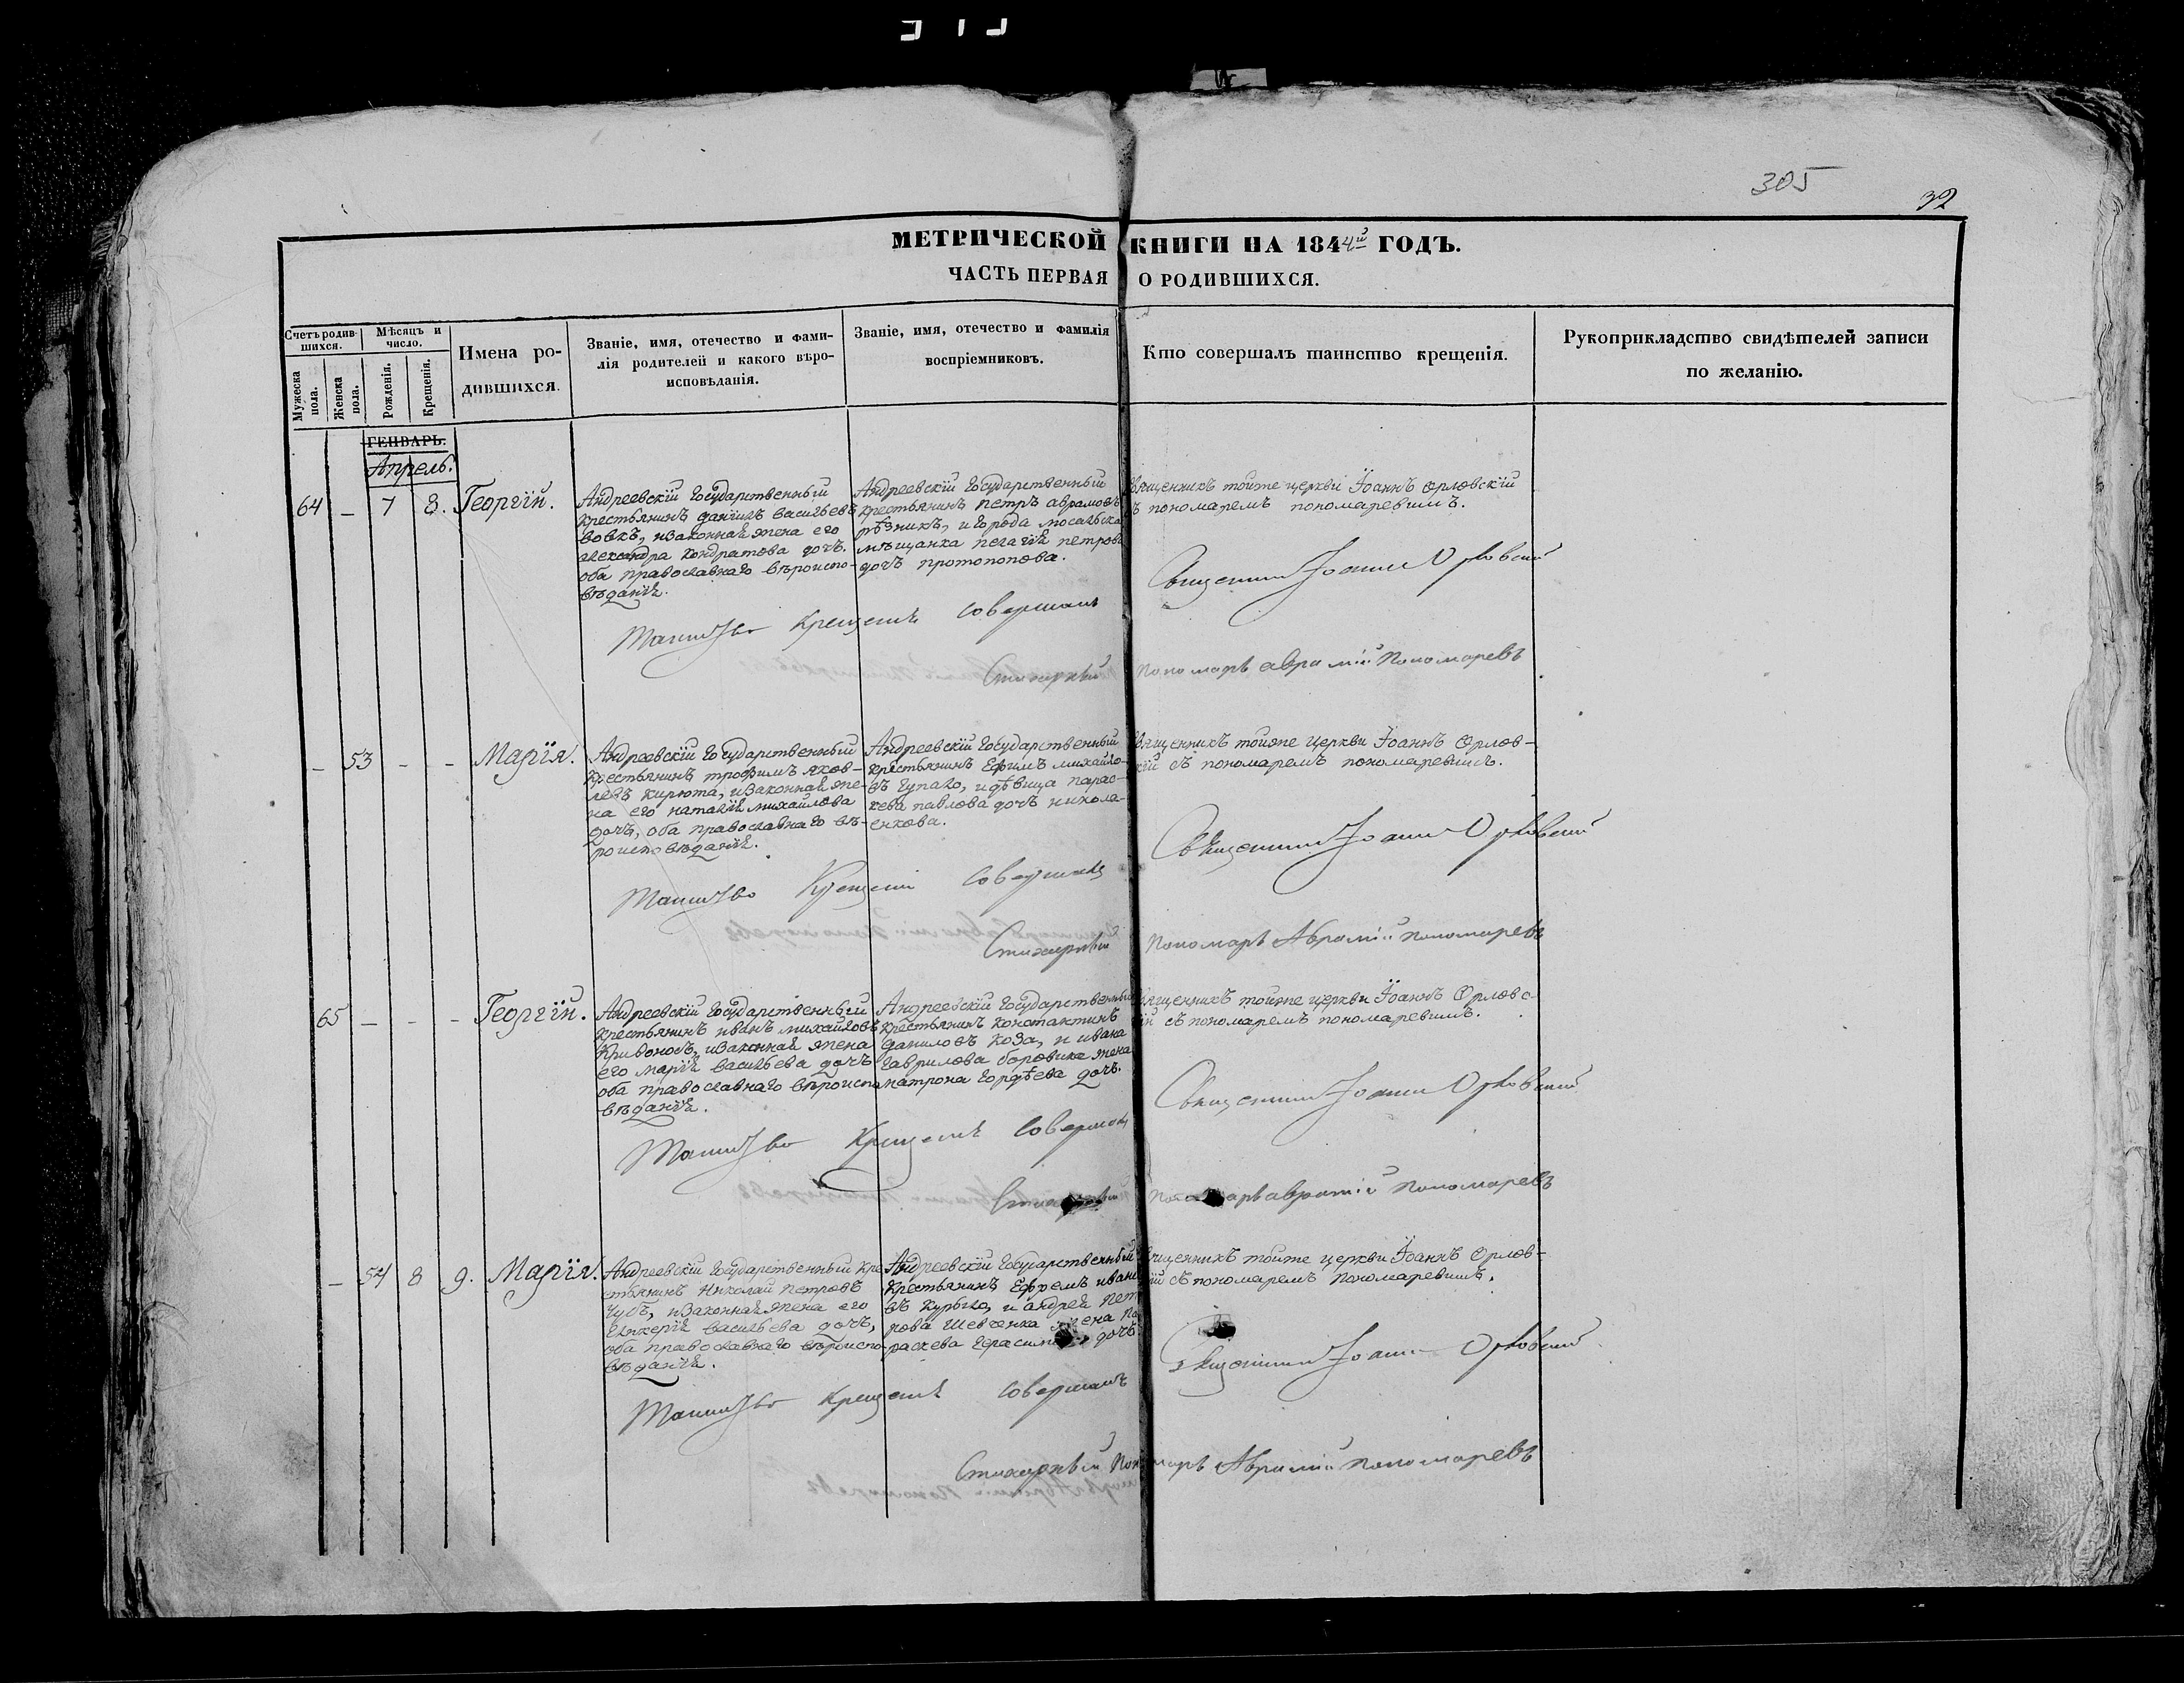 305
32
МЕТРИЧЕСКОЙ КНИГИ НА 1844й ГОДЪ.
ЧАСТЬ ПЕРВАЯ О РОДИВШИХСЯ.
Счетъ родив-
шихся.
Мужеска пола.
Женска пола.
Мѣсяцъ и
число.
Рожденія.
Крещенія.
Имена ро-
дившихся.
Званіе, имя, отечество и фами-
лія родителей и какого вѣро-
исповѣданія.
Званіе, имя, отечество и фамилія
воспріемниковъ.
Кто совершалъ таинство крещенія.
Рукоприкладство свидѣтелей записи
по желанію.
ГЕНВАРЬ.
Апрель.
64 – 7 8. Георгій.
Андреевскій Государственный
крестьянинъ Даніилъ Васильевъ
Вовкъ, и законная жена его
Александра Кондратова дочъ.
оба православнаго вѣроиспо-
вѣданія.
Андреевскій Государственный
крестьянинъ Петръ Аврамовъ
рѣзникъ, и города Мосальска
мѣщанка Пелагія Петрова
дочъ Протопопова.
Священникъ тойже церкви Іоаннъ Орловскій
съ пономаремъ Пономаревимъ.
Таинство Крещенія совершалъ Священникъ Іоаннъ Орловскій
Стихарный Пономарь Аврамій Пономаревъ
– 53 – – Марія.
Андреевскій Государственный
крестьянинъ Трофимъ Яков-
левъ Кирюта, и законная же-
на его Наталія Михайлова
дочъ, оба православнаго вѣ-
роисповѣданія.
Андреевскій Государственный
крестьянинъ Ефимъ Михайло-
въ Чупало, и дѣвица Парас-
кева Павлова дочъ Никола-
енкова.
Священникъ тойже церкви Іоаннъ Орлов-
скій съ пономаремъ Пономаревимъ.
Таинство Крещенія совершалъ Священникъ Іоаннъ Орловскій
Стихарный Пономарь Аврамій Пономаревъ
65 – – – Георгій.
Андреевскій Государственный
крестьянинъ Иванъ Михайловъ
Кривоносъ, и законная жена
его Марія Васильева дочъ
оба православнаго вѣроиспо-
вѣданія.
Андреевскій Государственный
крестьянинъ Константинъ
Даниловъ Коза, и Ивана
Гаврилова Боровика жена
Матрона Гордѣева дочъ.
Священникъ тойже церкви Іоаннъ Орловс-
кій съ пономаремъ Пономаревимъ.
Таинство Крещенія совершалъ Священникъ Іоаннъ Орловскій
Стихарный Пономарь Аврамій Пономаревъ
– 54 8 9. Марія.
Андреевскій Государственный кре-
стьянинъ Николай Петровъ
Чубъ, и законная жена его
Гликерія Васильева дочъ,
оба православнаго вѣроиспо-
вѣданія.
Андреевскій Государственный
крестьянинъ Ефремъ Ивано-
въ Курыло, и Андрея Пет-
рова Шевченка жена Па-
раскева Герасимова дочъ.
Священникъ тойже церкви Іоаннъ Орлов-
скій съ пономаремъ Пономаревимъ.
Таинство Крещенія совершалъ Священникъ Іоаннъ Орловскій
Стихарный Пономарь Аврамій Пономаревъ